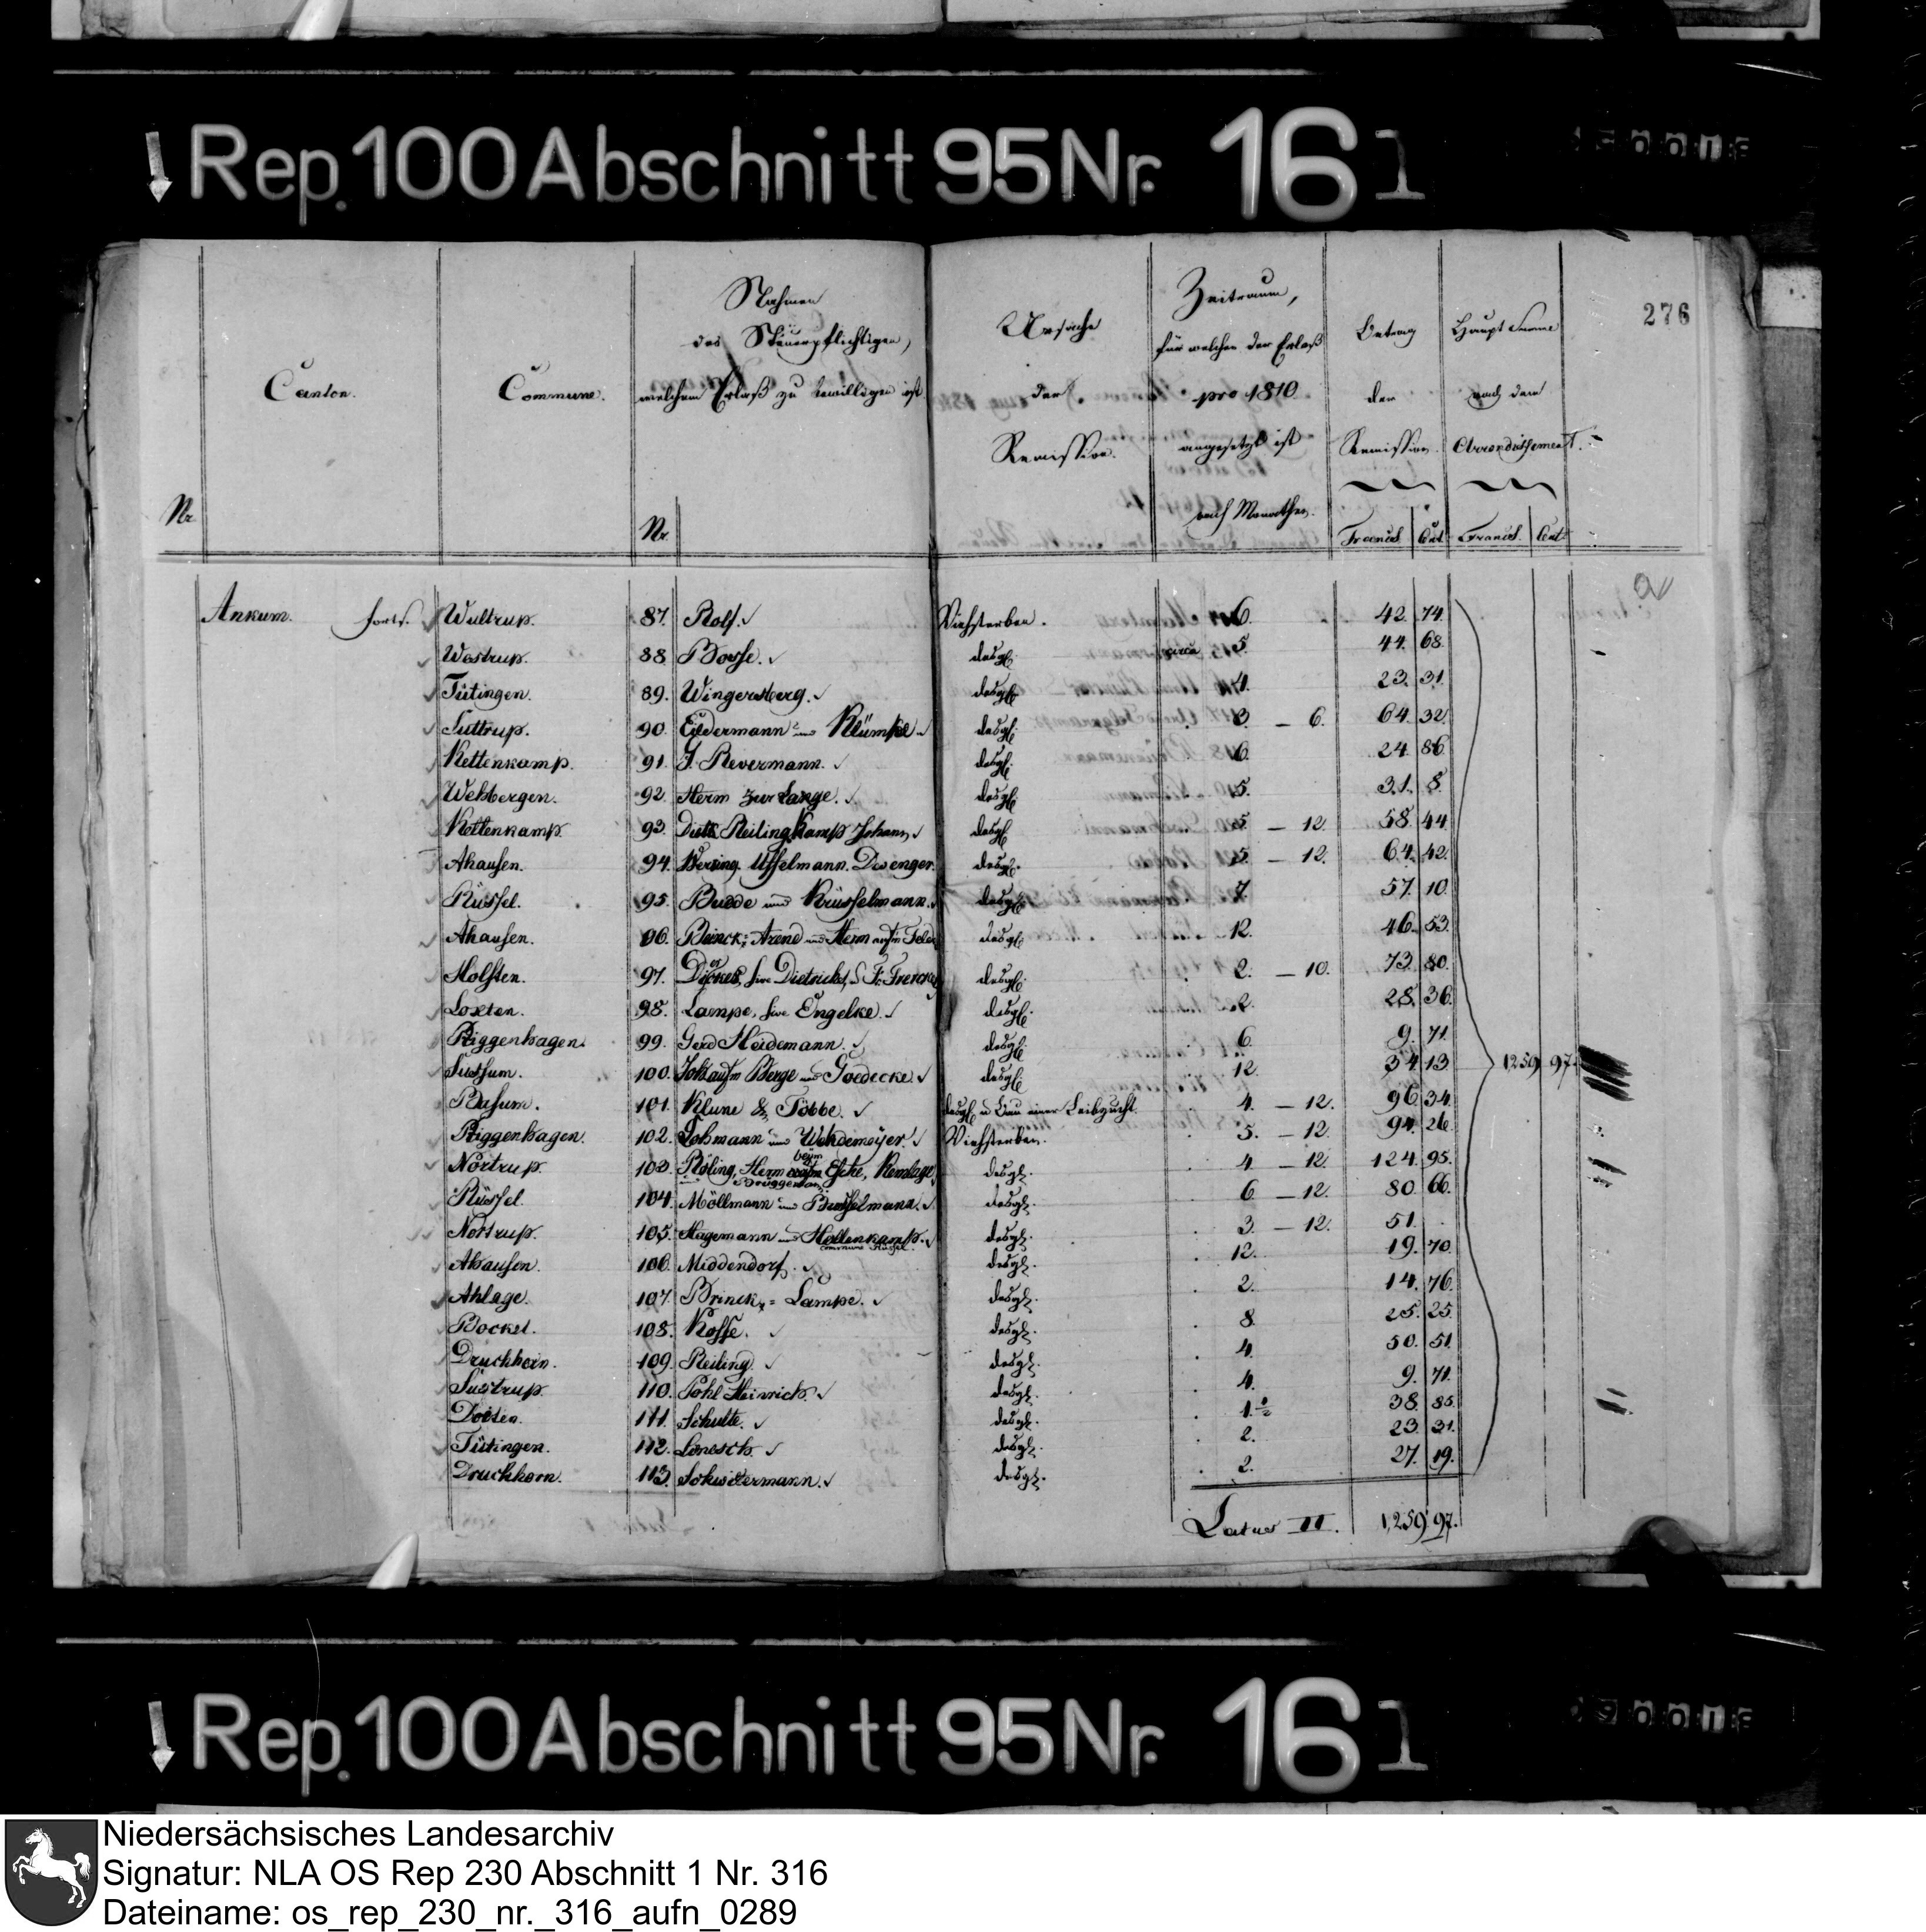 ↓ Rep. 100 Abschnitt 95 Nr. 16 1
276
Nr.
Canton.
Commune.
Nr.
Nahmen
des Steuerpflichtigen,
welchem Erlaß zu bewilligen ist
Ursache
der
Remission.
Zeitraum,
für welchen der Erlaß
pro 1810
angesetzt ist
nach Monathen.
Betrag
der
Remission.
Francs. Cent
Haupt Summe
nach dem
Arrondissement.
Francs. Cent
Ankum. forts. Wultrup. 87. Rolf. Viehsterben. 6. 42. 74.
Wastrup. 88. Bosse. desgl. circa 5. 44. 68.
Tütingen. 89. Wingersberg. desgl. 4. 23. 31.
Suttrup. 90. Eildermann und Klümke. desgl. 3. — 6. 64. 32.
Kettenkamp. 91. J. Revermann. desgl. 6. 24. 86.
Wehbergen. 92. Herm zur Lange. desgl. 5. 31. 8.
Kettenkamp. 93. Reiling, Kamp Johann, desgl. 5 — 12. 58. 44
Ahausen. 94. Wersing. Uffelmann. Dwenger. desgl. 5. — 12. 64. 42.
Rüssel. 95. Budde und Krüsselmann. desgl. 7. 57. 10.
Ahausen. 96. Brinck, Arend und Herm aufm Felde desgl. 12. 46. 53.
Holsten. 97. sive Dietrichs, desgl. 2. — 10. 73. 80.
Loxten. 98. Lampe, sive Engelke. desgl. 2. 28. 36.
Riggenhagen. 99. Gerd Heidemann. desgl. 6. 9. 71.
Sussum. 100. Joh aufm Berge und Goedecke. desgl. 12. 34. 13. 1259 97.
Basum. 101. Klune & Többe. desgl. u Bau einer Leibzucht. 4. — 12. 96. 34.
Riggenhagen. 102. Lohmann und Wohdemeyer. Viehsterben. 5. — 12. 94. 26.
Nortrup. 103. Röling, Herm beym Esche, Kemlage, Brüggemann desgl. 4 — 12. 124. 95.
Rüssel. 104. Möllmann und Büsselmann. desgl. 6 — 12. 80. 66.
Nortrup. 105. Hagemann und Hollenkamp. commune Rüssel. desgl. 3. — 12. 51. .
Ahausen. 106. Middendorf. desgl. 12. 19. 70.
Ahlage. 107. Brinck = Lampe. desgl. 2. 14. 76.
Bockel. 108. Kosse. desgl. 8. 25. 25.
Druchhorn. 109. Reiling. desgl. 4. 50. 51.
Sustrup. 110. Pohl Heinrich. desgl. 4. 9. 71.
Döthen. 111. Schulte. desgl. 1 ½ 38. 85.
Tütingen. 112. Loresch. desgl. 2. 23. 31.
Druchhorn. 113. Schwietermann. desgl. 2. 27. 19.
Latus II. 1,259 97.
↓ Rep. 100 Abschnitt 95 Nr. 16 1
Niedersächsisches Landesarchiv
Signatur: NLA OS Rep 230 Abschnitt 1 Nr. 316
Dateiname: os_rep_230_nr._316_aufn_0289